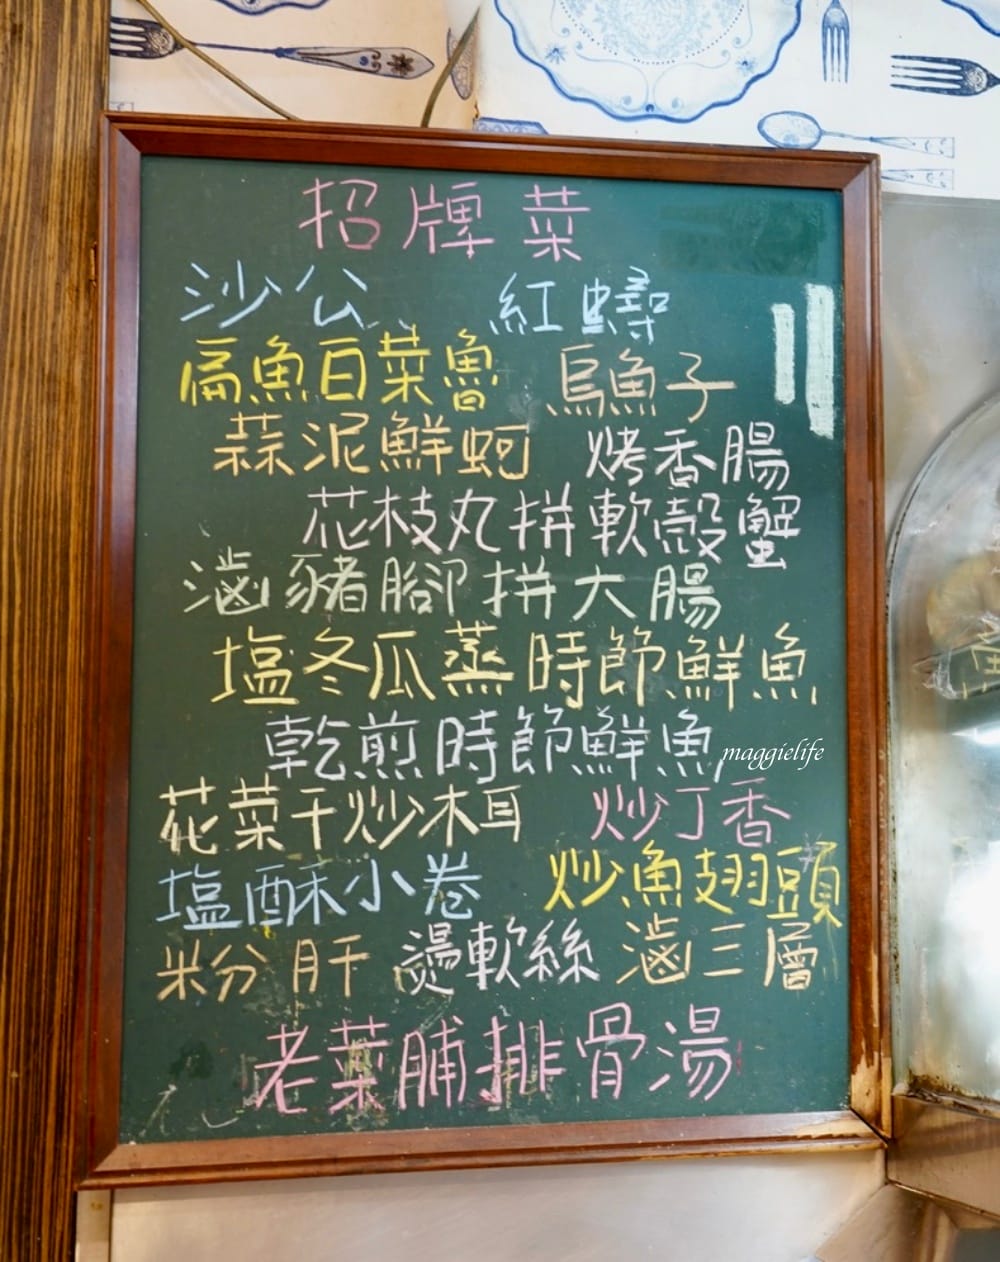 招牌菜
沙公 紅蟳
扁魚白菜魯 烏魚子
蒜泥鮮蚵 烤香腸
花枝丸拼軟殼蟹
滷豬腳拼大腸
塩冬瓜蒸時節鮮魚
乾煎時節鮮魚
maggielife
花菜干炒木耳 炒丁香
塩酥小卷 炒魚翅頭
米分肝 燙軟絲 滷三層
老菜脯排骨湯